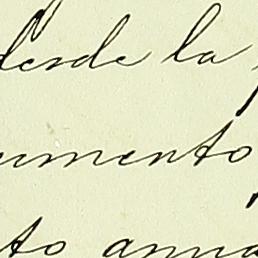 desde la
umento
to anua